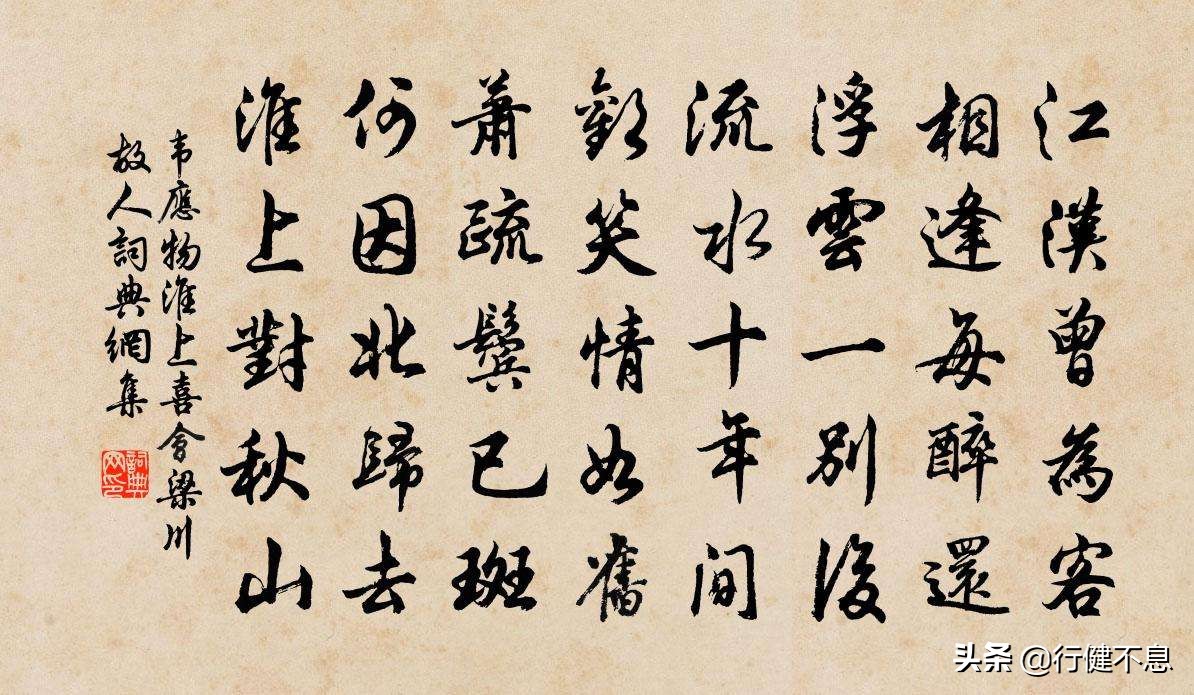 江漢曾為客
相逢每醉還
浮雲一別後
流水十年間
歡笑情如舊
蕭疏鬢已斑
何因北歸去
淮上對秋山
韦應物淮上喜會梁川
故人詞典網集
詞典网印
头条 @行健不息